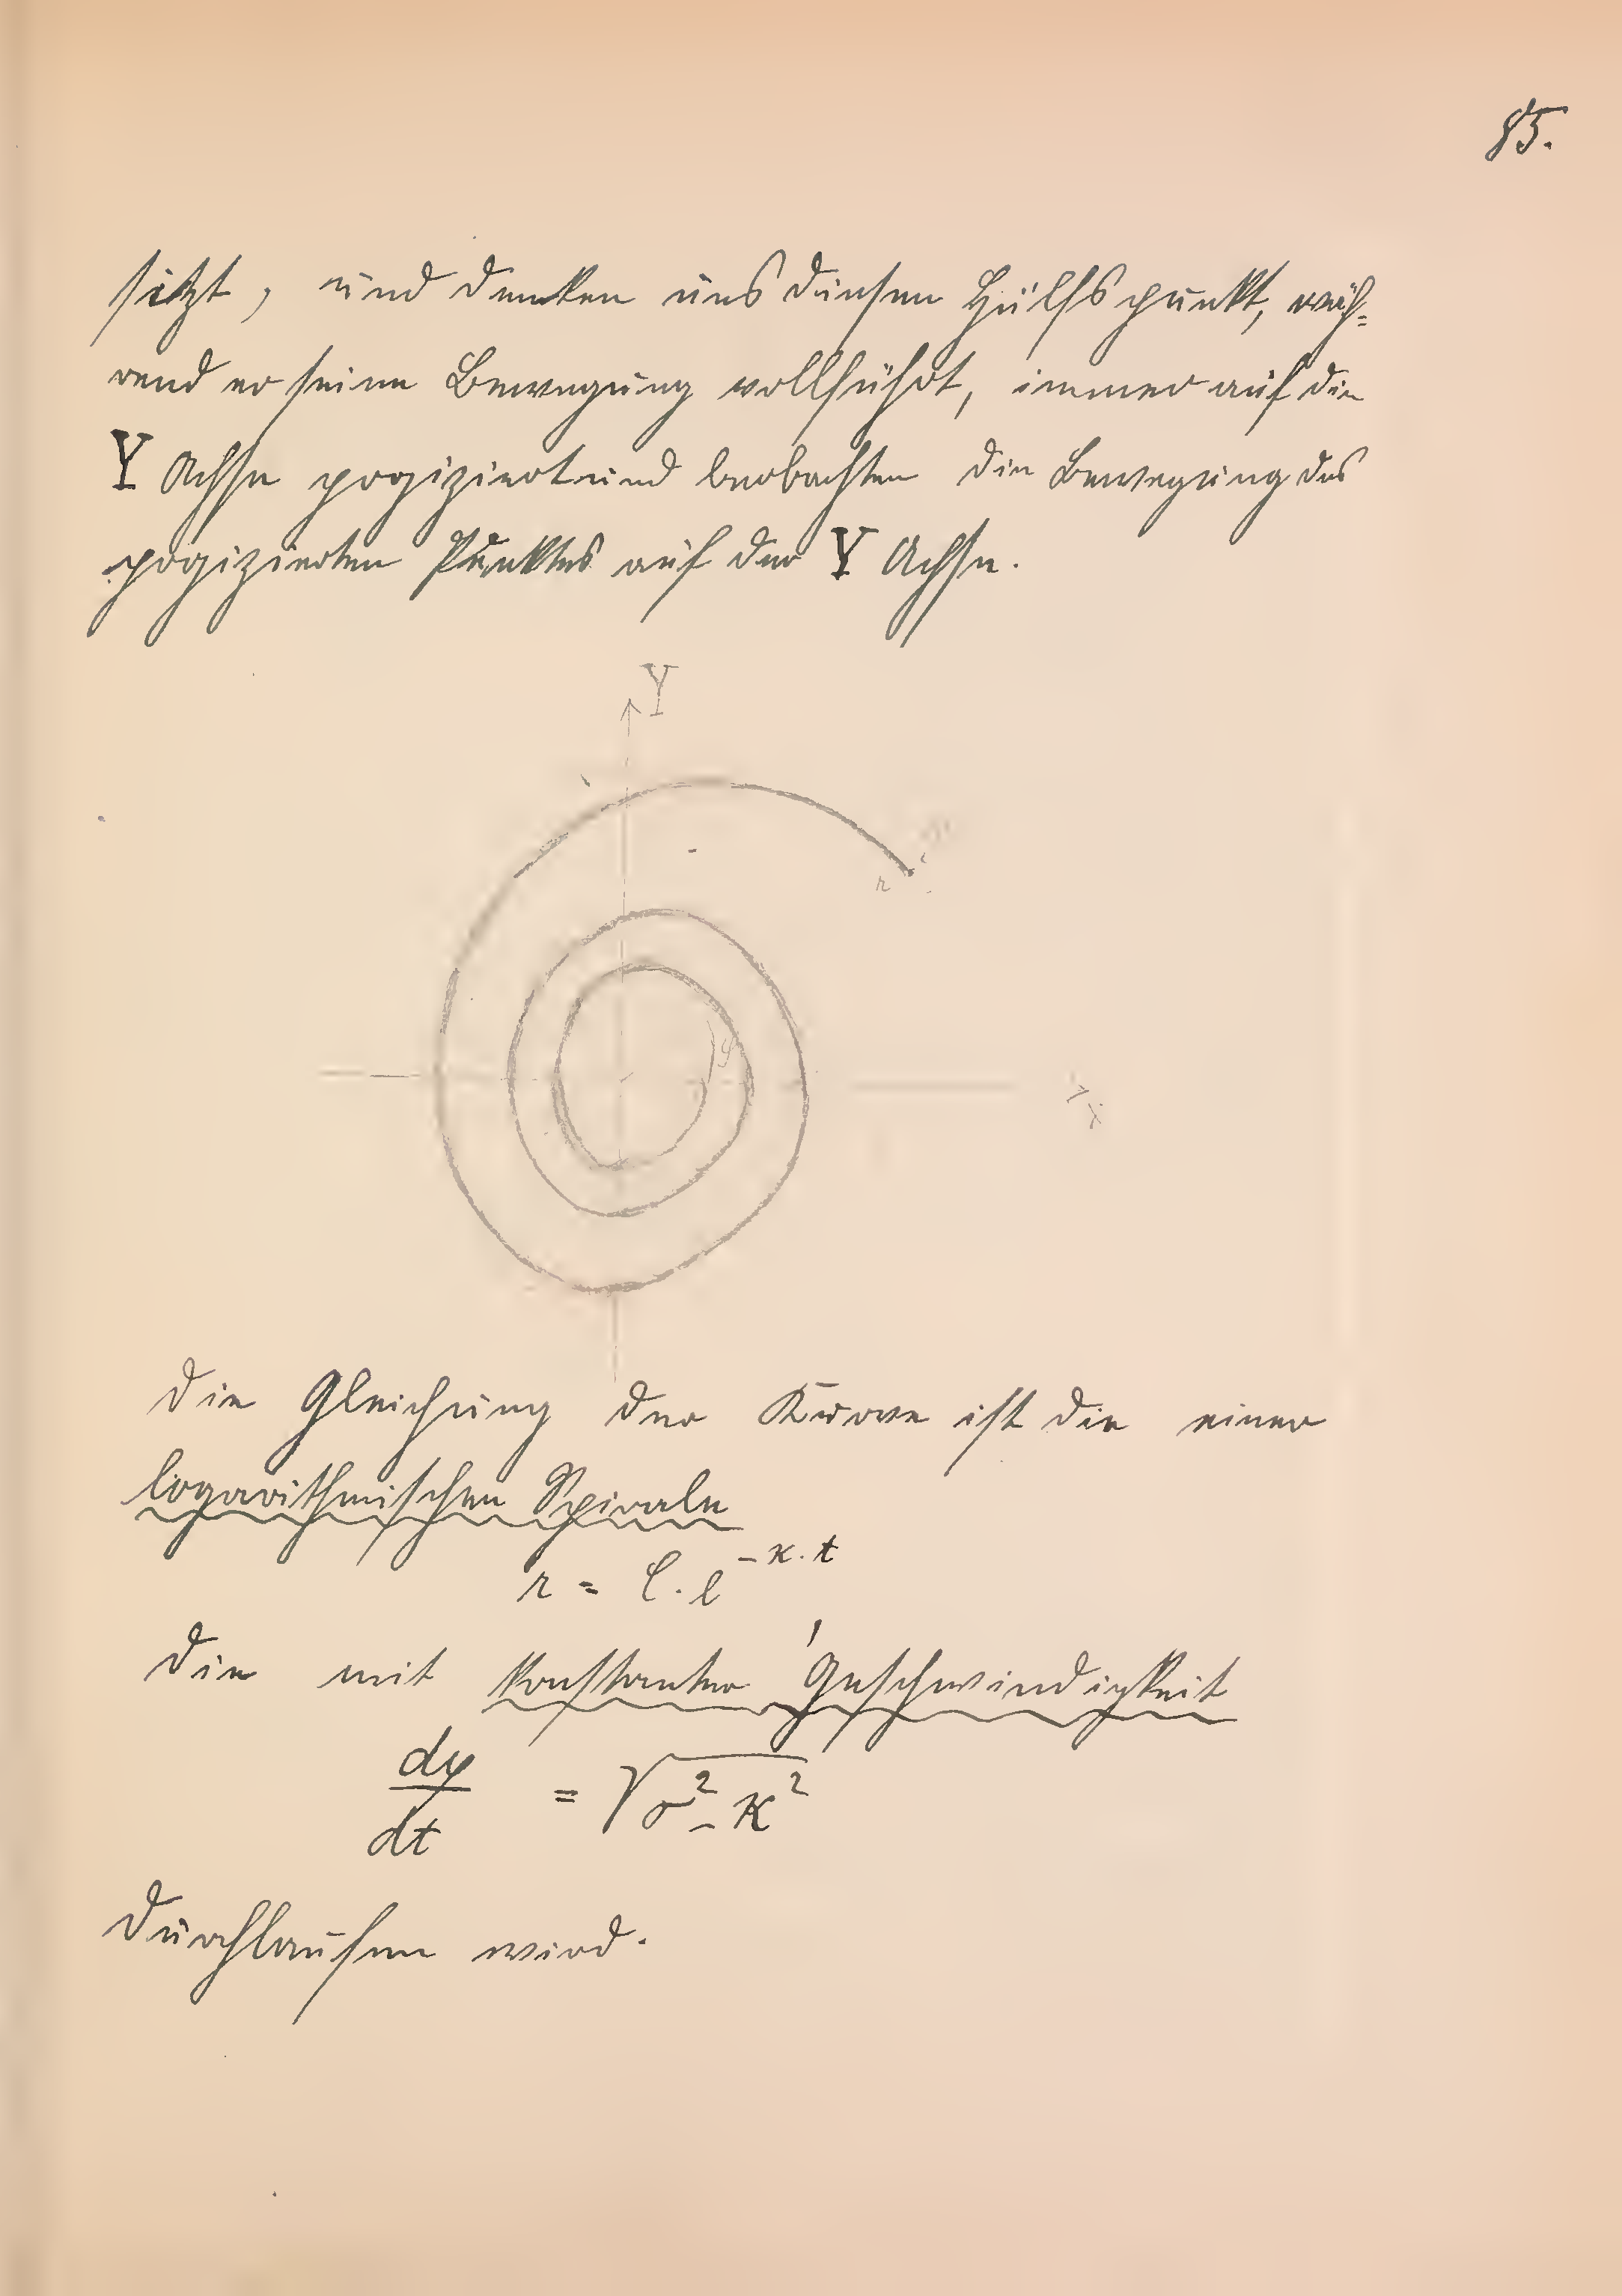 85.
sitzt, und denken uns diesen Hülfspunkt, wäh-
rend er seine Bewegung vollführt, immer auf die
Y Achse projiziert und beobachten die Bewegung des
projizierten Punktes auf der Y Achse.
Y
r
φ
X
Die Gleichung der Kurve ist die einer
logarithmischen Spirale
r = C. e^{-κ.t}
die mit konstanter Geschwindigkeit
dφ/dt = √(σ² - κ²)
durchlaufen wird.